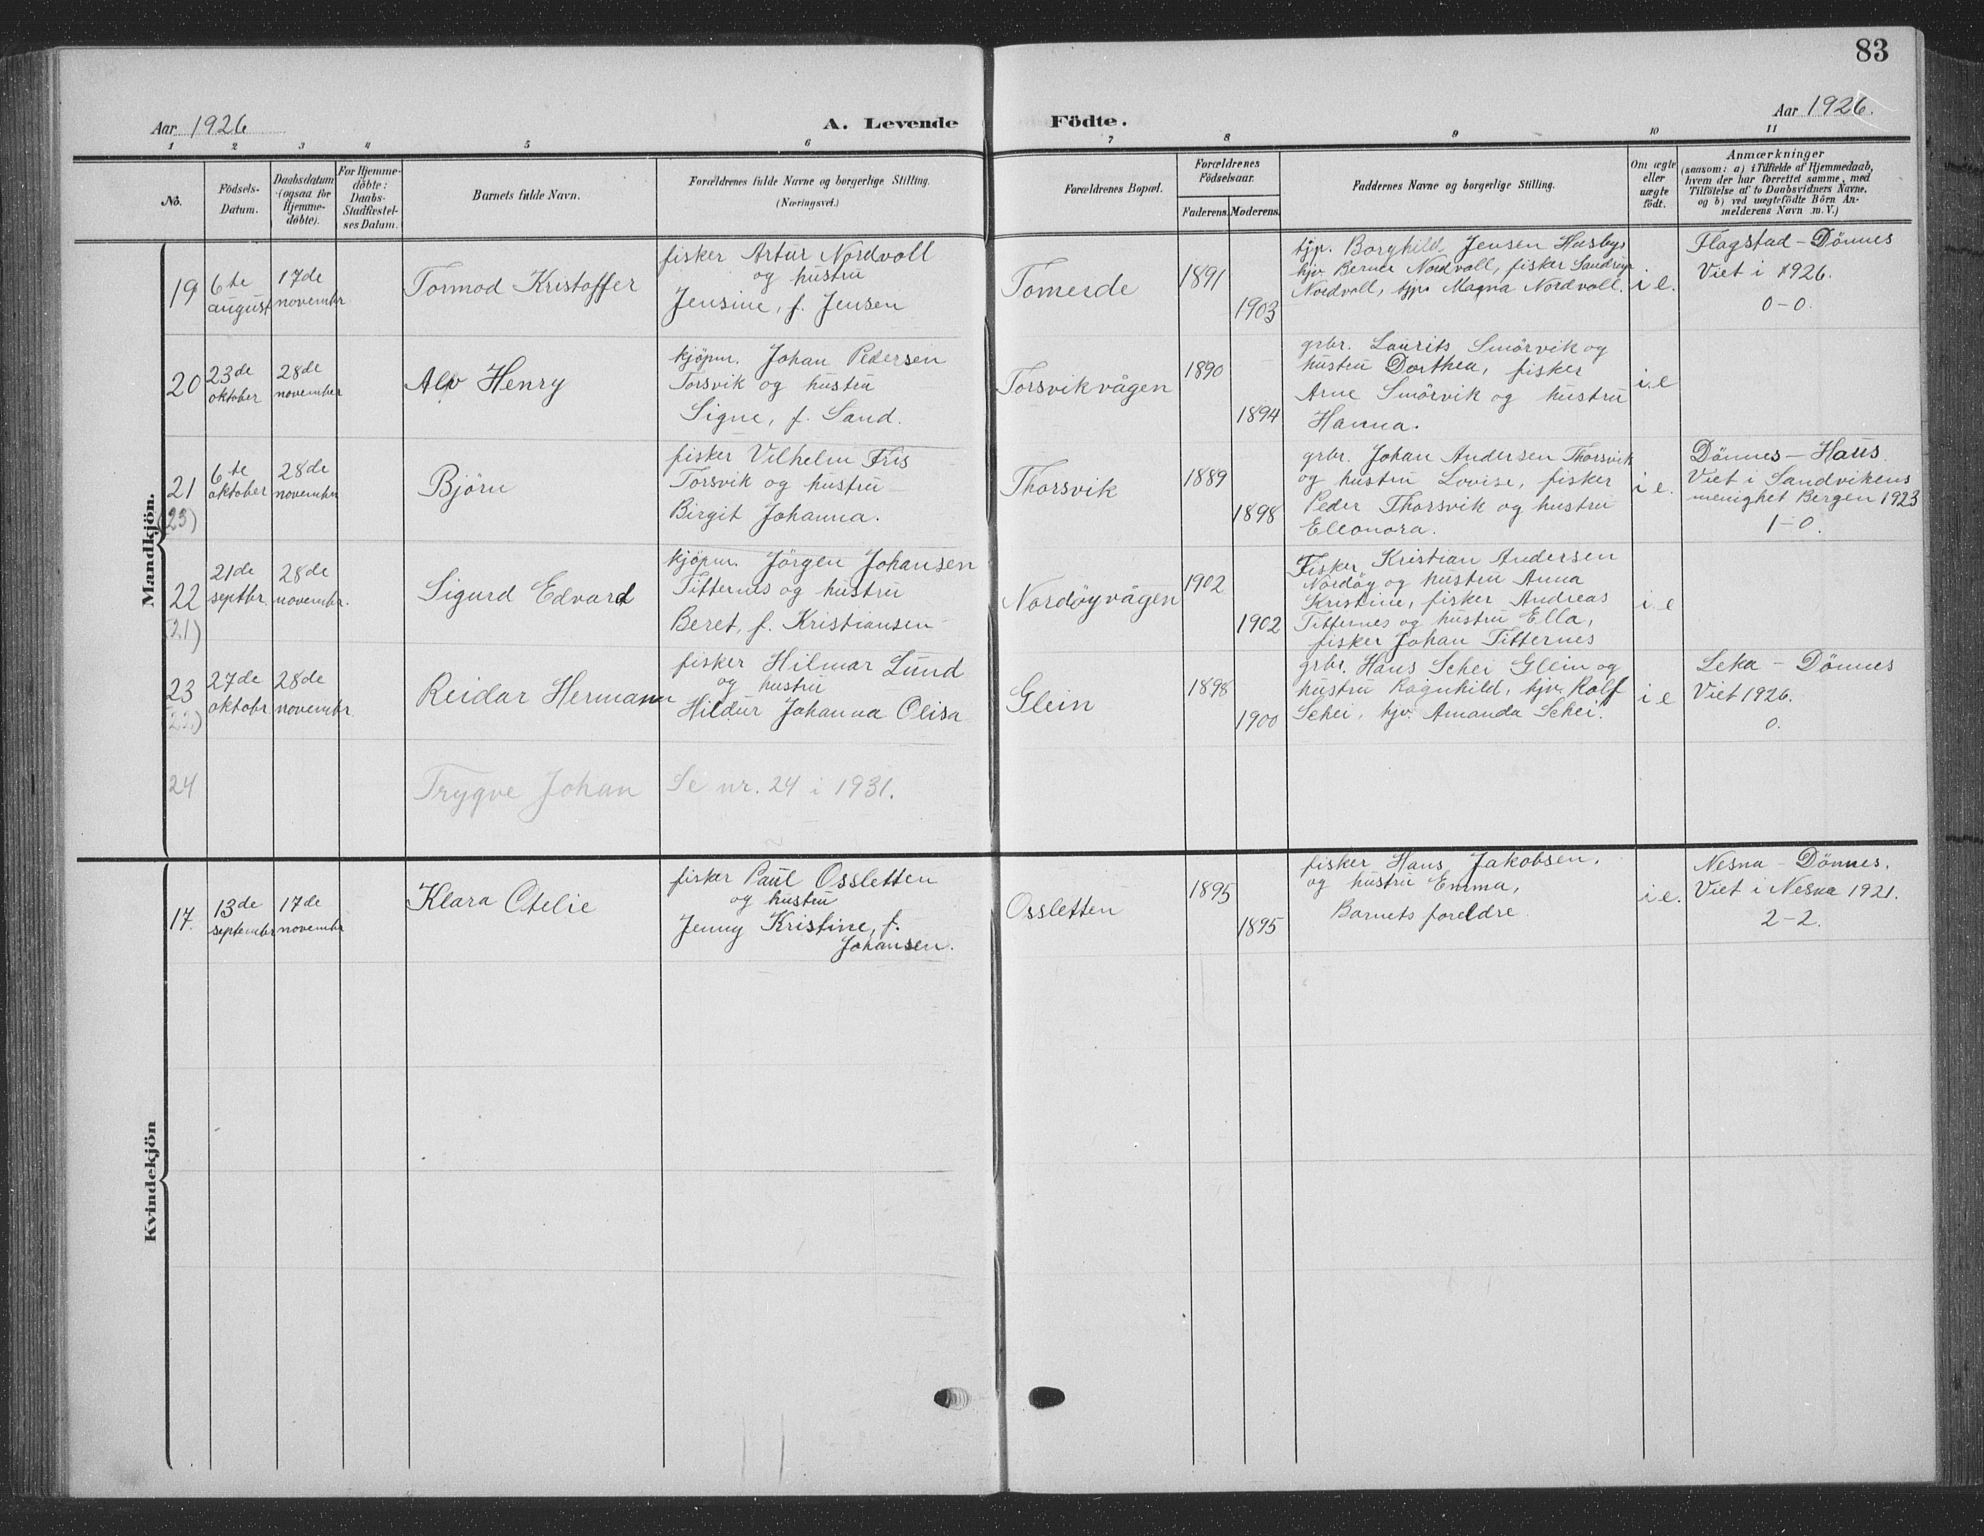 83
Aar 1926
A. Levende
Födte.
Aar 1926.
1 2 3 4 5 6 7 8 9 10 11
No.
Födsels-
Datum.
Daabsdatum
(ogsaa for
Hjemme-
döbte).
For Hjemme-
döbte:
Daabs-
Stadfæstel-
ses Datum.
Barnets fulde Navn.
Forældrenes fulde Navne og borgerlige Stilling.
(Næringsvei.)
Forældrenes Bopæl.
Forældrenes
Födselsaar.
Faderens. Moderens.
Faddernes Navne og borgerlige Stilling.
Om ægte
eller
uægte
födt.
Anmærkninger
(saasom: a) i Tilfælde af Hjemmedaab,
hvem der har forrettet samme, med
Tilföielse af to Daabsvidners Navne,
og b) ved uægtefödte Börn An-
melderens Navn m. V.)
Mandkjön.
19
6te
august
17de
novembr
Tormod Kristoffer
fisker Artur Nordvoll
og hustru
Jensine, f. Jensen
Tomeide
1891
1903
tjp. Borghild Jensen Husby,
hjv. Berner Nordvoll, fisker
Nordvoll, tjp. Magna Nordvoll.
i e.
Flagstad – Dönnes
Viet i 1926.
0–0.
20
23de
oktober
28de
november
Alv Henry
kjöpm. Johan Pedersen
Torsvik og hustru
Signe, f. Sand.
Torsvikvågen
1890
1894
grbr. Laurits Smörvik og
hustru Dorthea, fisker
Arne Smörvik og hustru
Hanna.
i.e
21
(23)
6te
oktober
28de
novembr
Björn
fisker Vilhelm Fris
Torsvik og hustru
Birgit Johanna.
Thorsvik
1889
1898
grbr. Johan Andersen Thorsvik
og hustru Lovise, fisker
Peder Thorsvik og hustru
Elleonora.
i e.
Dönnes – Haus.
Viet i Sandvikens
menighet Bergen 1923
1–0.
22
(21)
21de
septbr
28de
novembr.
Sigurd Edvard
kjöpm. Jörgen Johansen
Titternes og hustru
Beret, f. Kristiansen
Nordöyvågen
1902
1902
Fisker Kristian Andersen
Nordöy og hustru Anna
Kristine, fisker Andreas
Titternes og hustru Ella,
fisker Johan Titternes
i e
23
(22)
27de
oktobr
28de
novembr
Reidar Hermann
fisker Hilmar Lund
og hustru
Hildur Johanna Olisa
Glein
1898
1900
grbr. Hans Schei Glein og
hustru Ragnhild, hjv. Rolf
Schei, hjv. Amanda Schei.
i e
Leka – Dönnes
Viet 1926.
0.
24
Trygve Johan
Se nr. 24 i 1931.
Kvindekjön
17.
13de
septembr
17de
novembr
Klara Otelie
fisker Paul Ossletten
og hustru
Jenny Kristine, f.
Johansen.
Ossletten
1895
1895
fisker Hans Jakobsen,
og hustru Emma,
Barnets foreldre
i e.
Nesna – Dönnes.
Viet i Nesna 1921.
2–2.